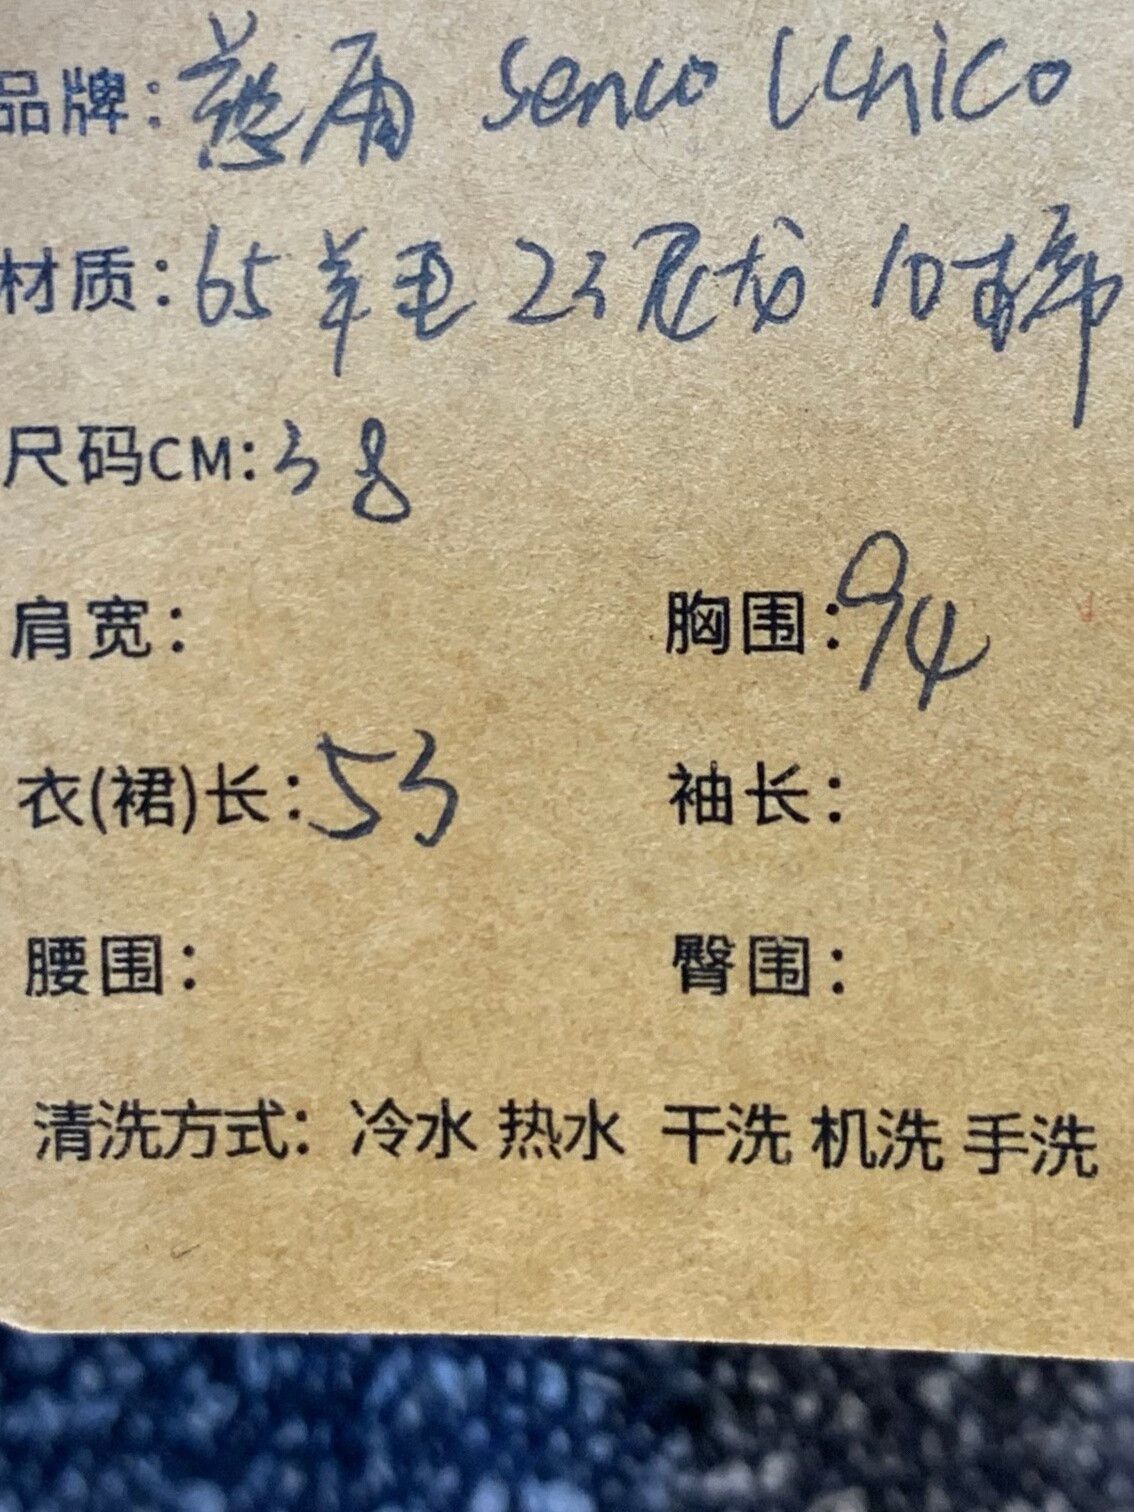 品牌: 慈甬 senuo UChico
材质: 65羊毛 23尼龙 10棉
尺码CM: 38
肩宽: 胸围: 94
衣(裙)长: 53 袖长:
腰围: 臀围:
清洗方式: 冷水 热水 干洗 机洗 手洗